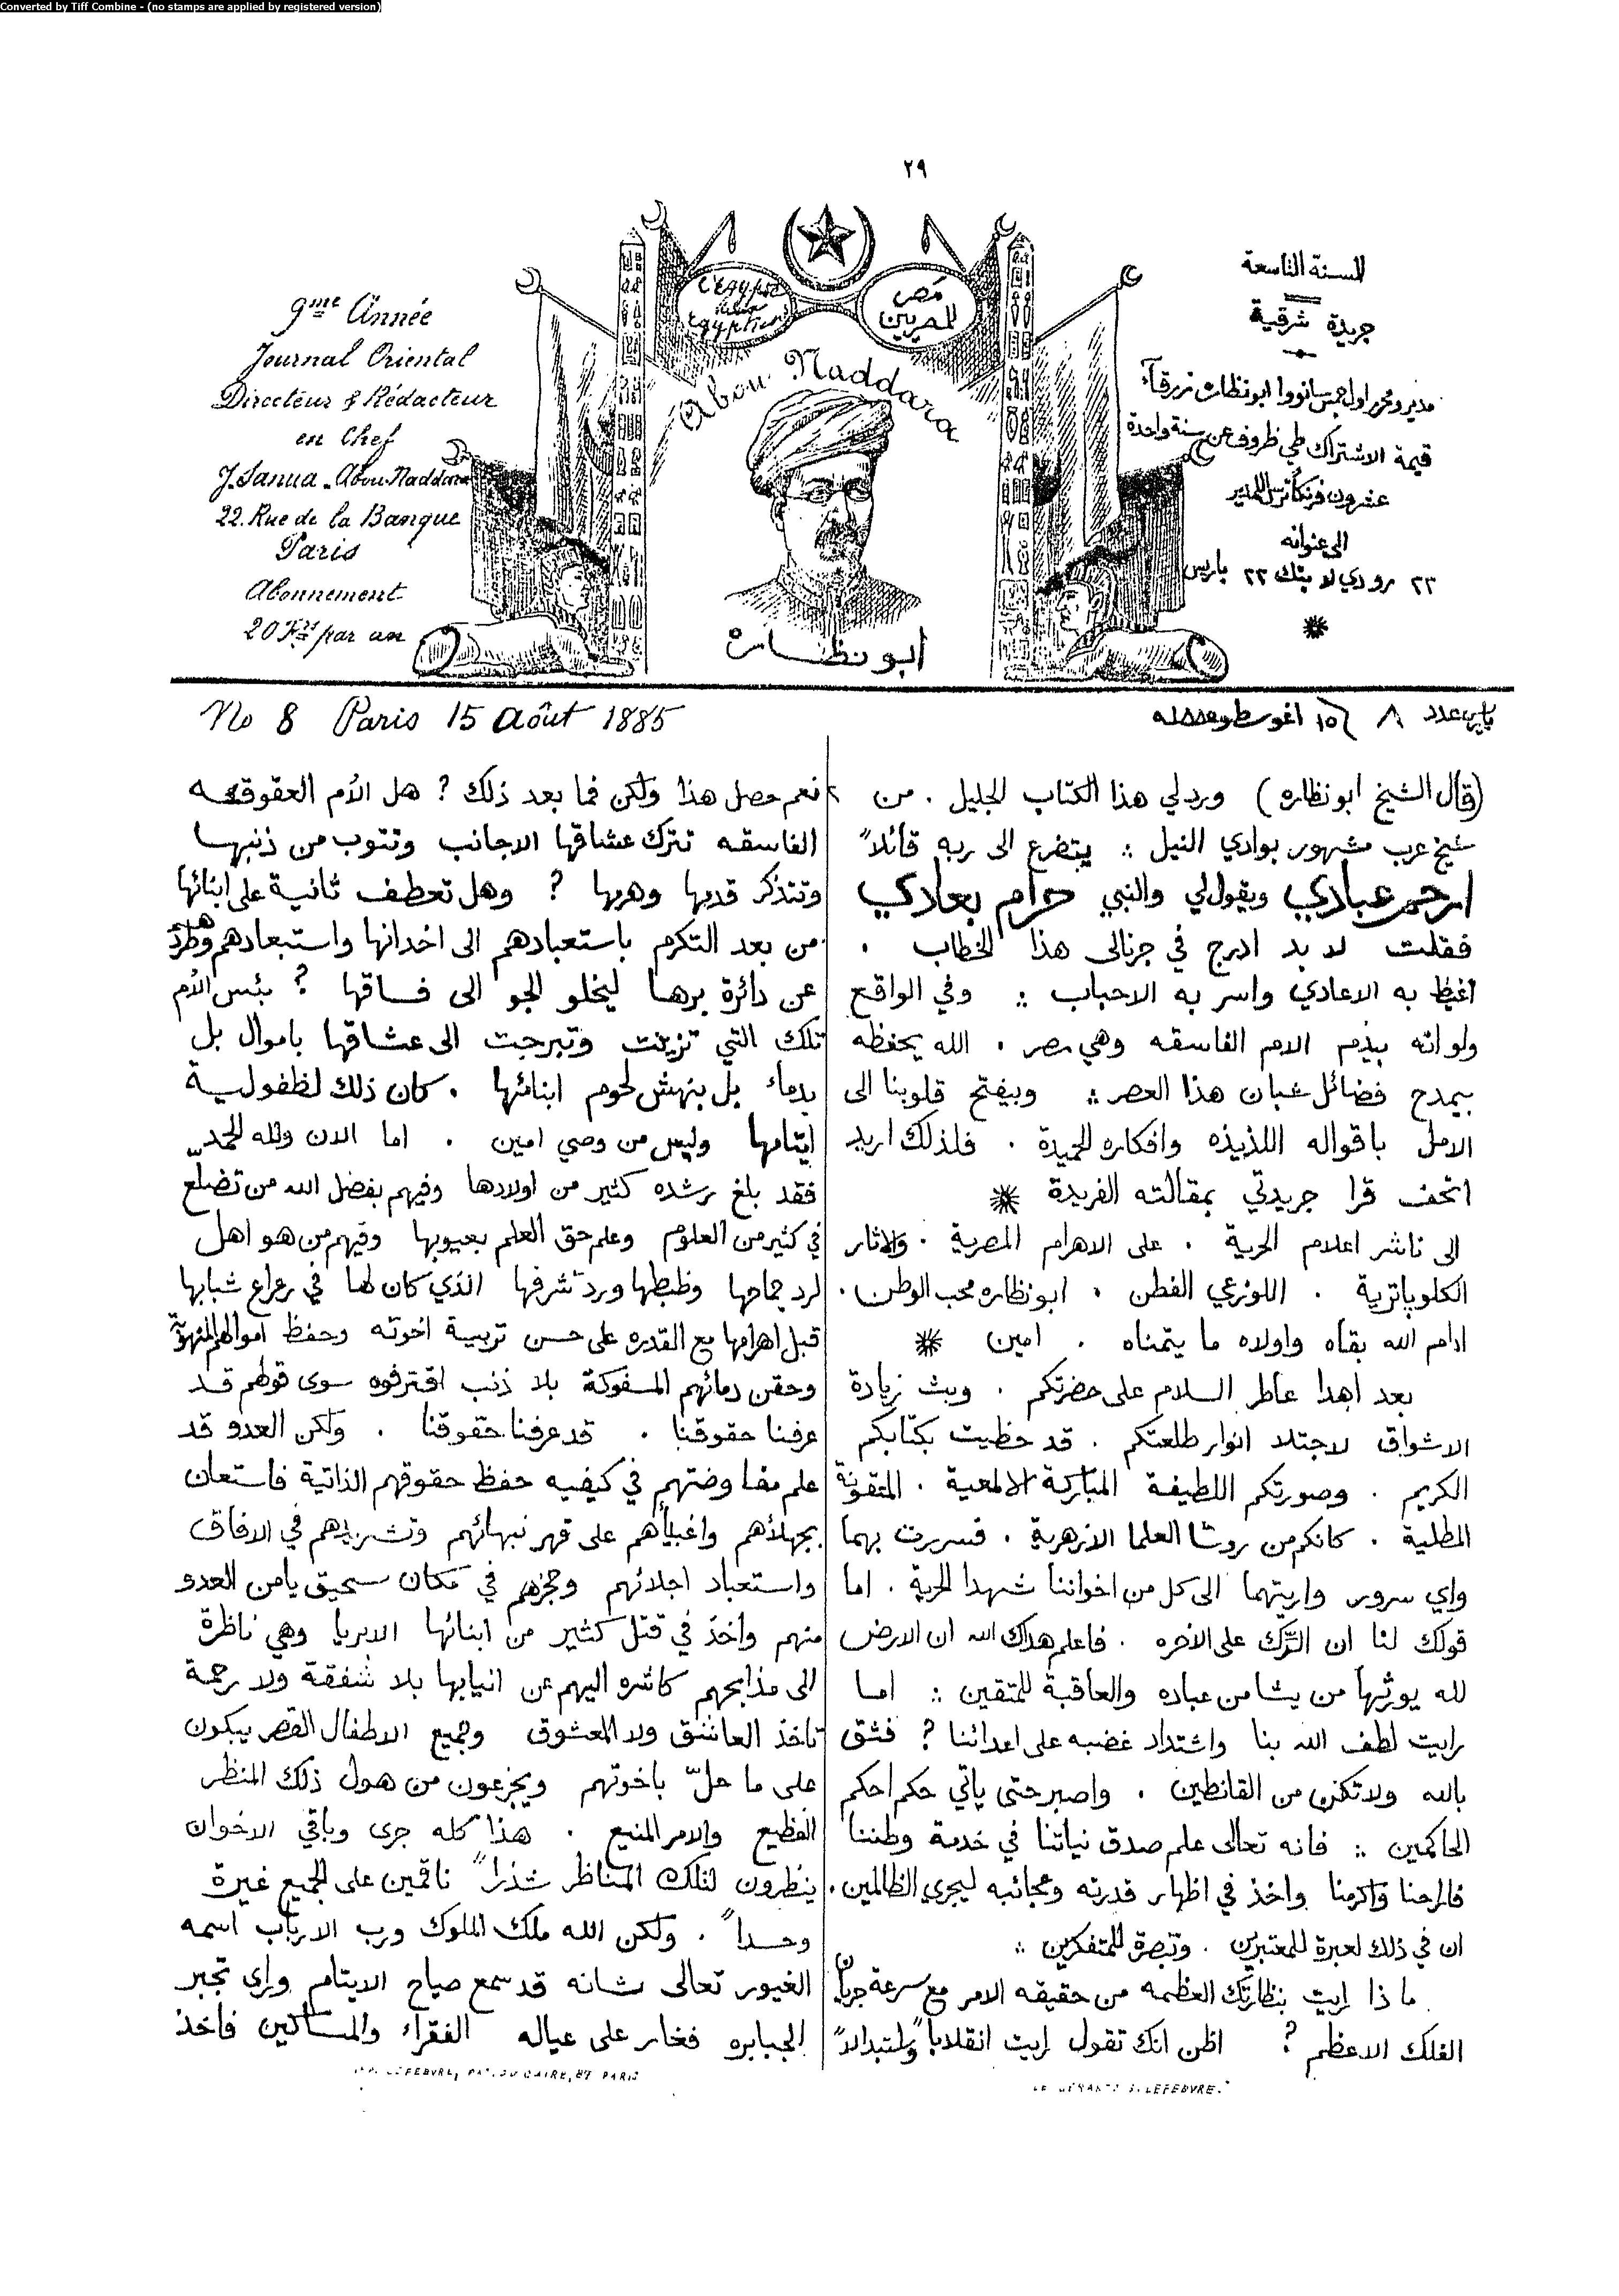 Converted by Tiff Combine - (no stamps are applied by registered version)
٢٩
9me Année
Journal Oriental
Directeur & Rédacteur
en Chef
J. Sanua. Abou Naddara
22. Rue de la Banque
Paris
Abonnement
20 Frs par an
L'Egypte
Egyptiens
مصر
للمصريين
Abou Naddara
ابو نظاره
السنة التاسعة
جريدة شرقية
مدير ومحرر اول جمس سانووا ابو نظاره زرقآء
قيمة الاشتراك طي ظروف عن سنة واحدة
عشرون فرنكا ترسل للمدير
الى عنوانه
٢٢ رو دي لا بنك ٢٢ باريس
No 8 Paris 15 Août 1885
باريس عدد ٨ في ١٥ اغوسطوس ١٨٨٥
(قال الشيخ ابو نظاره) ورد لي هذا الكتاب الجليل . من
شيخ عرب مشهور بوادي النيل ؞ يتضرع الى ربه قائلاً
ارحم عبادي ويقول لي والنبي حرام بعادي
فقلت لا بد ادرج في جرنالى هذا الخطاب .
اغيظ به الاعادي واسر به الاحباب ؞ وفي الواقع
ولو انه بيذم الام الفاسقه وهي مصر . الله يحفظه
بيمدح فضائل شبان هذا العصر ؞ وبيفتح قلوبنا الى
الامل باقواله اللذيذه وافكاره الحميدة . فلذلك اريد
اتحف قرا جريدتي بمقالته الفريدة
الى ناشر اعلام الحرية . على الاهرام المصرية . والاثار
الكلوباترية . اللوزعي الفطن . ابو نظاره محب الوطن .
ادام الله بقاه واولاه ما يتمناه . امين
بعد اهدا عاطر السلام على حضرتكم . وبث زيادة
الاشواق لاجتلا انوار طلعتكم . قد حظيت بكتابكم
الكريم . وصورتكم اللطيفة المباركة الالمعية .
المطلية . كانكم من روسا العلما الازهرية . فسررت بهما
واي سرور واريتهما الى كل من اخواننا شهدا الحرية . اما
قولك لنا ان الترك على الاخره . فاعلم هداك الله ان الارض
لله يورثها من يشا من عباده والعاقبة للمتقين ؞ اما
رايت لطف الله بنا واشتداد غضبه على اعدائنا ؟ فثق
بالله ولا تكن من القانطين . واصبر حتى ياتي حكم احكم
الحاكمين ؞ فانه تعالى علم صدق نياتنا في خدمة وطننا
فاراحنا واكرمنا واخذ في اظهار قدرته وعجائبه ليجزي الظالمين .
ان في ذلك لعبرة للمعتبرين . وتبصرة للمتفكرين ؞
ما ذا رايت بنظارتك العظمه من حقيقه الامر مع سرعة جريان
الفلك الاعظم ؟ اظن انك تقول رايت انقلابا واستبدالاً
نعم حصل هذا ولكن فما بعد ذلك ؟ هل الأم العقوقه
الفاسقه تترك عشاقها الاجانب وتتوب من ذنبها
وتتذكر قدمها وهرمها ؟ وهل تعطف ثانية على ابنائها
من بعد التكرم باستعبادهم الى اخدانها واستبعادهم وطردهم
عن دائرة برها ليخلو الجو الى فساقها ؟ بئس الأم
تلك التي تزينت وتبرجت الى عشاقها باموال بل
بدماء بل بنهش لحوم ابنائها . كان ذلك لطفولية
ايتامها وليس من وصي امين . اما الان ولله الحمد
فقد بلغ رشده كثير من اولادها وفيهم بفضل الله من تضلع
في كثير من العلوم وعلم حق العلم بعيوبها وفيهم من هو اهل
لرد جماحها وظبطها ورد شرفها الذي كان لها في رعراع شبابها
قبل اهرامها مع القدره على حسن تربية اخوته وحفظ اموالهم المنهوبة
وحقن دمائهم المسفوكة بلا ذنب اقترفوه سوى قولهم قد
عرفنا حقوقنا . قد عرفنا حقوقنا . ولكن العدو قد
علم مفاوضتهم في كيفيه حفظ حقوقهم الذاتية فاستعان
بجهلائهم واغبيائهم على قهر نبهائهم وتشريدهم في الافاق
واستعباد اجلائهم وحجزهم في مكان سحيق يامن العدو
منهم واخذ في قتل كثير من ابنائها الابريا وهي ناظرة
الى مذابحهم كاشره اليهم عن انيابها بلا شفقة ولا رحمة
تاخذ العاشق ولا المعشوق وجميع الاطفال القصر يبكون
على ما حلّ باخوتهم ويجزعون من هول ذلك المنظر
الفظيع والامر المنيع . هذا كله جرى وباقي الاخوان
ينظرون لتلك المناظر شذراً ناقمين على الجميع غيرة
وحسداً . ولكن الله ملك الملوك ورب الارباب اسمه
الغيور تعالى شانه قد سمع صياح الايتام وراى تجبر
الجبابره فغار على عياله الفقراء والمساكين فاخذ
LEFEBVRE, PAS. DU CAIRE, 87 PARIS
LE GÉRANT LEFEBVRE.